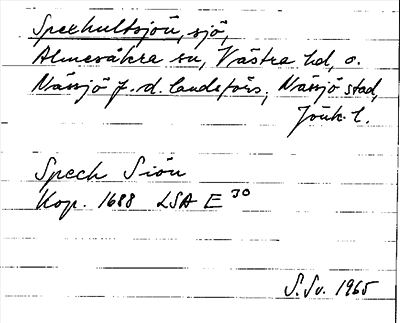 Spexhultsjön, sjö,
Almesåkra sn, Västra hd, o.
Nässjö f.d. landsförs., Nässjö stad,
Jönk. l.
Spech Siön
Kop. 1688 LSA E 30
S.Sv. 1965